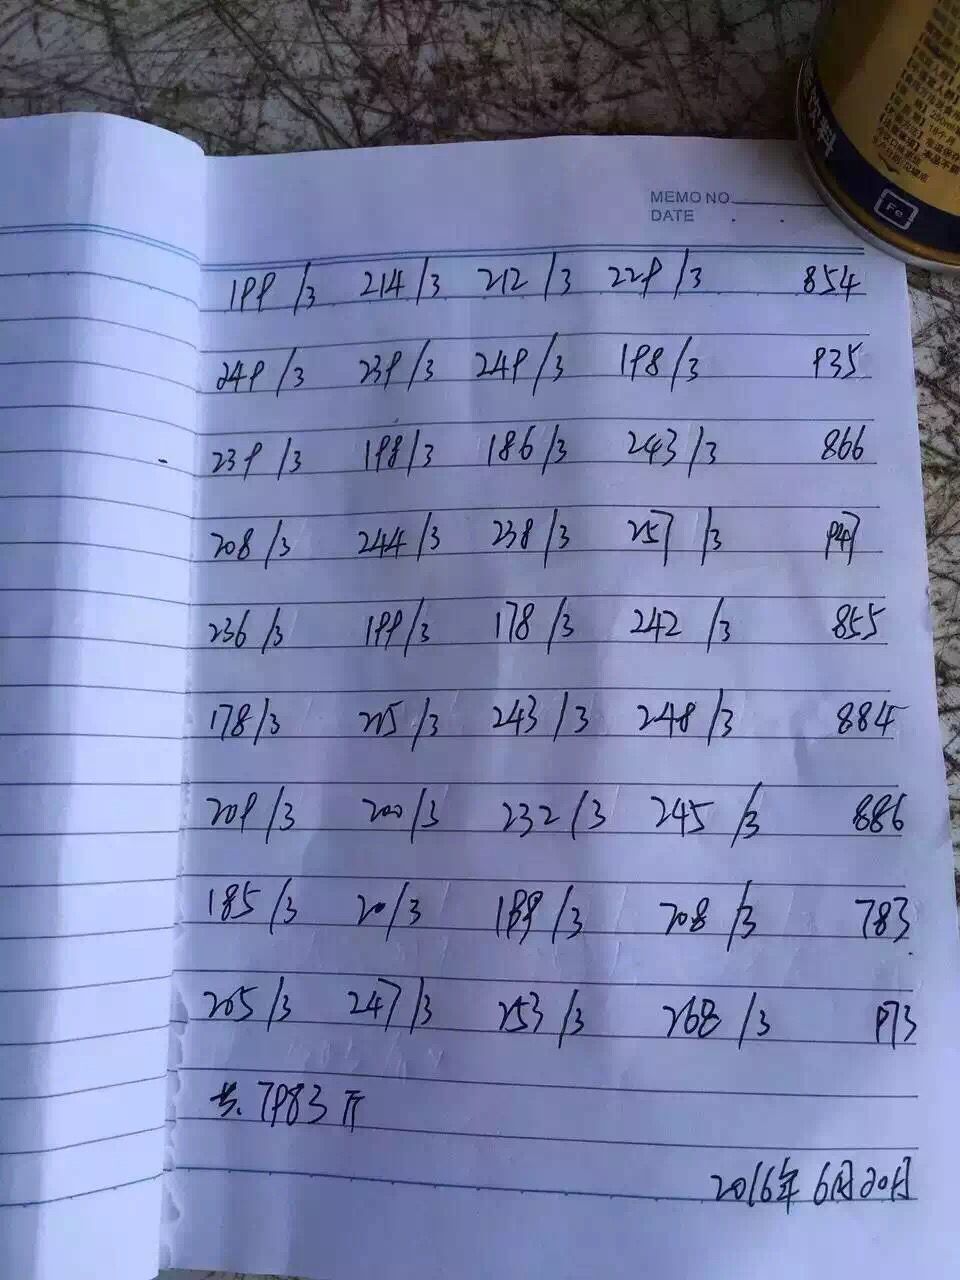 MEMO NO
DATE . .
199/3 214/3 212/3 229/3 854
249/3 239/3 249/3 198/3 935
239/3 198/3 186/3 243/3 866
208/3 244/3 238/3 257/3 947
236/3 199/3 178/3 242/3 855
178/3 215/3 243/3 248/3 884
209/3 200/3 232/3 245/3 886
185/3 201/3 189/3 208/3 783
205/3 247/3 253/3 268/3 973
共.7983斤
2016年6月20日
饮料
Fe